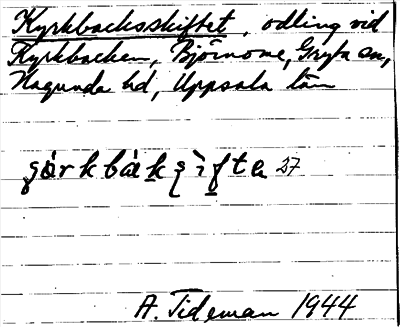 Kyrkbacksskiftet, odling vid
Kyrkbacken, Björnome, Gryta sn,
Hagunda hd, Uppsala län
27
A. Tideman 1944